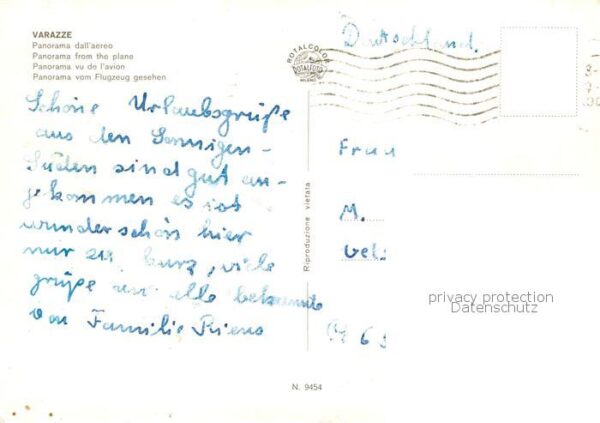 VARAZZE
Panorama dall'aereo
Panorama from the plane
Panorama vu de l'avion
Panorama vom Flugzeug gesehen
ROTALCOLOR
ROTALFOTO
MILANO
Deutschland.
Schöne Urlaubsgrüße
aus den Sonnigen-
Süden sind gut an-
gekommen es ist
wunderschön hier
nur zu kurz, viele
grüße an alle bekannte
von Familie
Frau
M.
Gel
Riproduzione vietata
privacy protection
Datenschutz
N. 9454